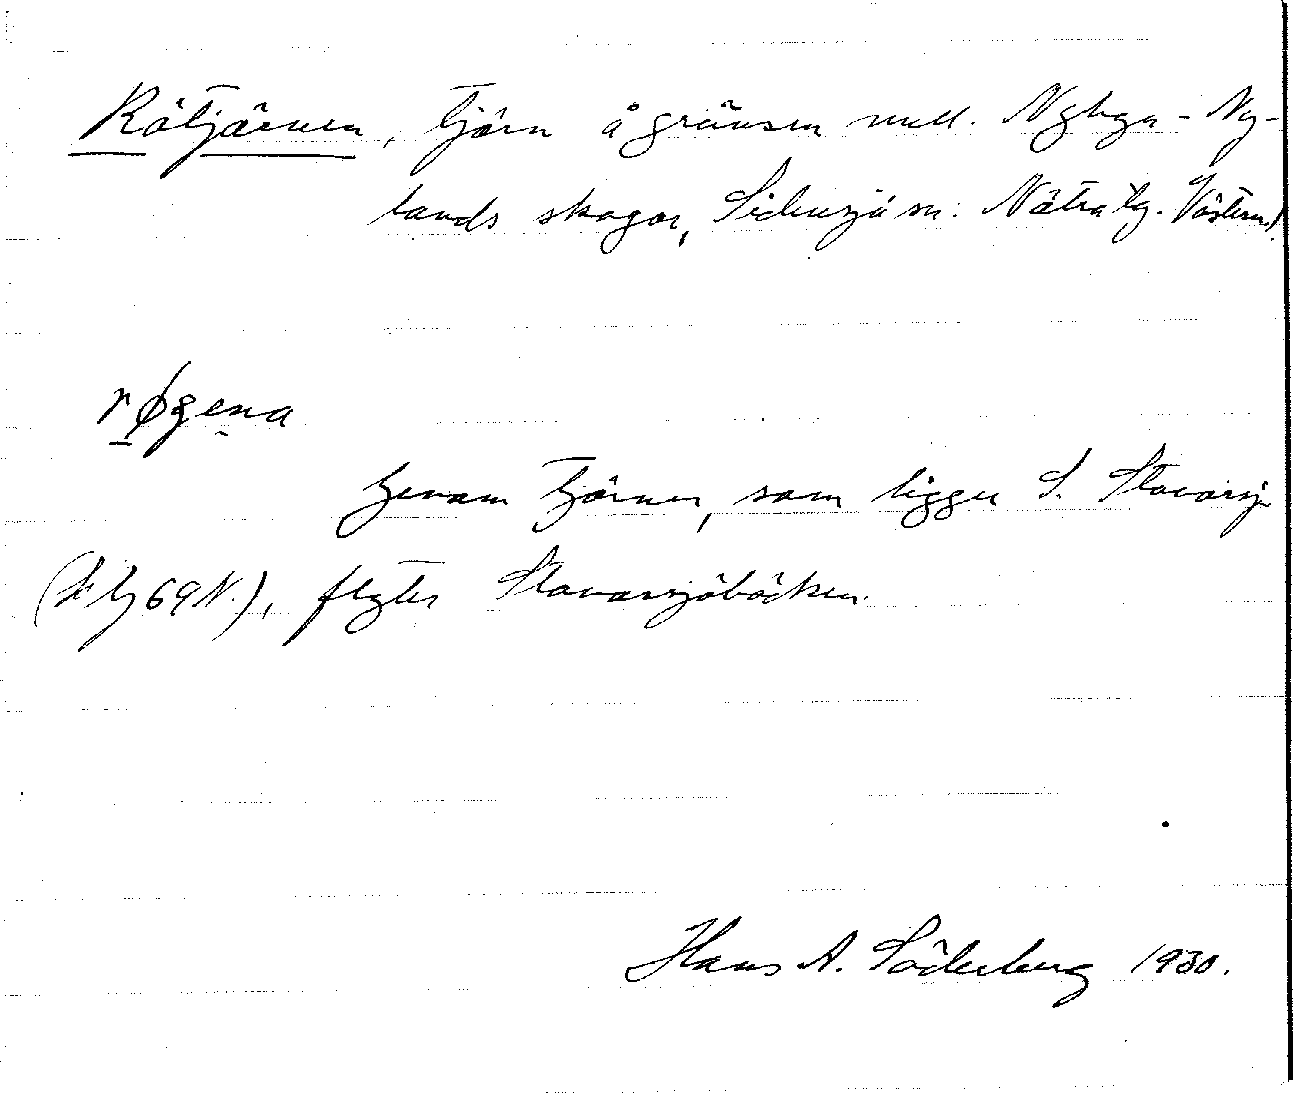 Rötjärnen, tjärn å gränsen mell. Nybyn - Ny-
lands skogar, Sidensjö sn. Nätra tg. Västernl.
røgena
Genom tjärnen, som ligger S. Stavarsj.
(bl 69 N.), flyter Stavarsjöbäcken.
Hans A. Söderberg 1930.